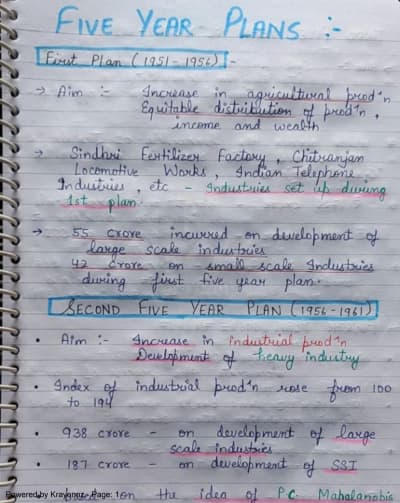 FIVE YEAR PLANS :-
First Plan (1951-1956) :-
→ Aim :- Increase in agricultural prod^n
Equitable distribution of prod^n,
income and wealth
→ Sindhri Fertilizer Factory, Chitranjan
Locomotive Works, Indian Telephone
Industries, etc - Industries set up during
1st plan
→ 55 crore incurred on development of
large scale industries
42 crore - on small scale Industries
during first five year plan.
SECOND FIVE YEAR PLAN (1956-1961)
• Aim :- Increase in industrial prod^n
Development of heavy industry
• Index of industrial prod^n rose from 100
to 194
• 938 crore - on development of large
scale industries
• 187 crore - on development of SSI
on the idea of P.C. Mahalanobis
Powered by Page: 1